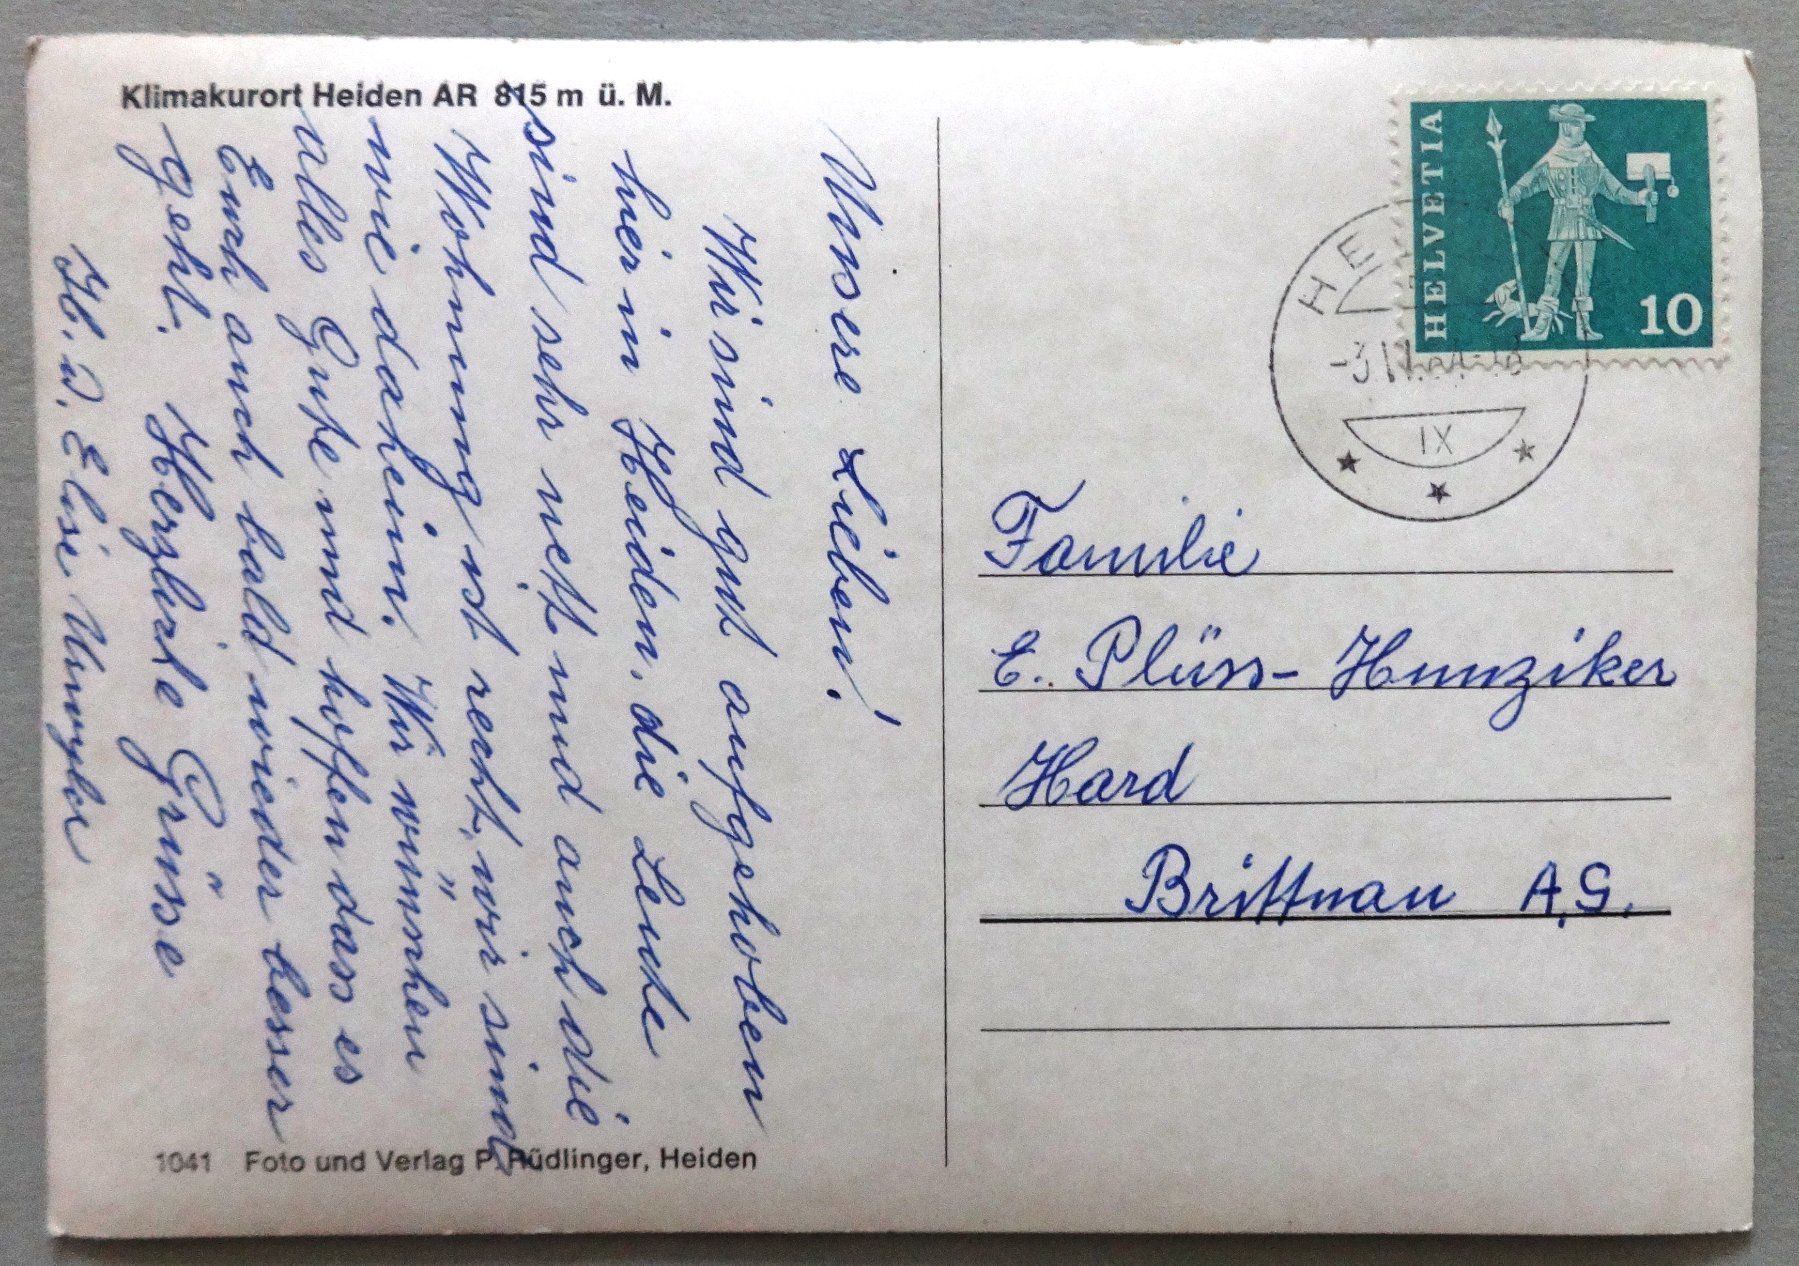 Klimakurort Heiden AR 815 m ü. M.
Unsere Lieben!
Wir sind gut aufgehoben
hier in Heiden, die Leute
sind sehr nett und auch die
Wohnung ist recht, wir sind
wie daheim. Wir wünschen
alles Gute und hoffen dass es
Euch auch bald wieder besser
geht. Herzliche Grüsse
H. u. Elsie
1041 Foto und Verlag P. Rüdlinger, Heiden
HELVETIA
10
IX
Familie
E. Plüss-Hunziker
Hard
Brittnau A.G.